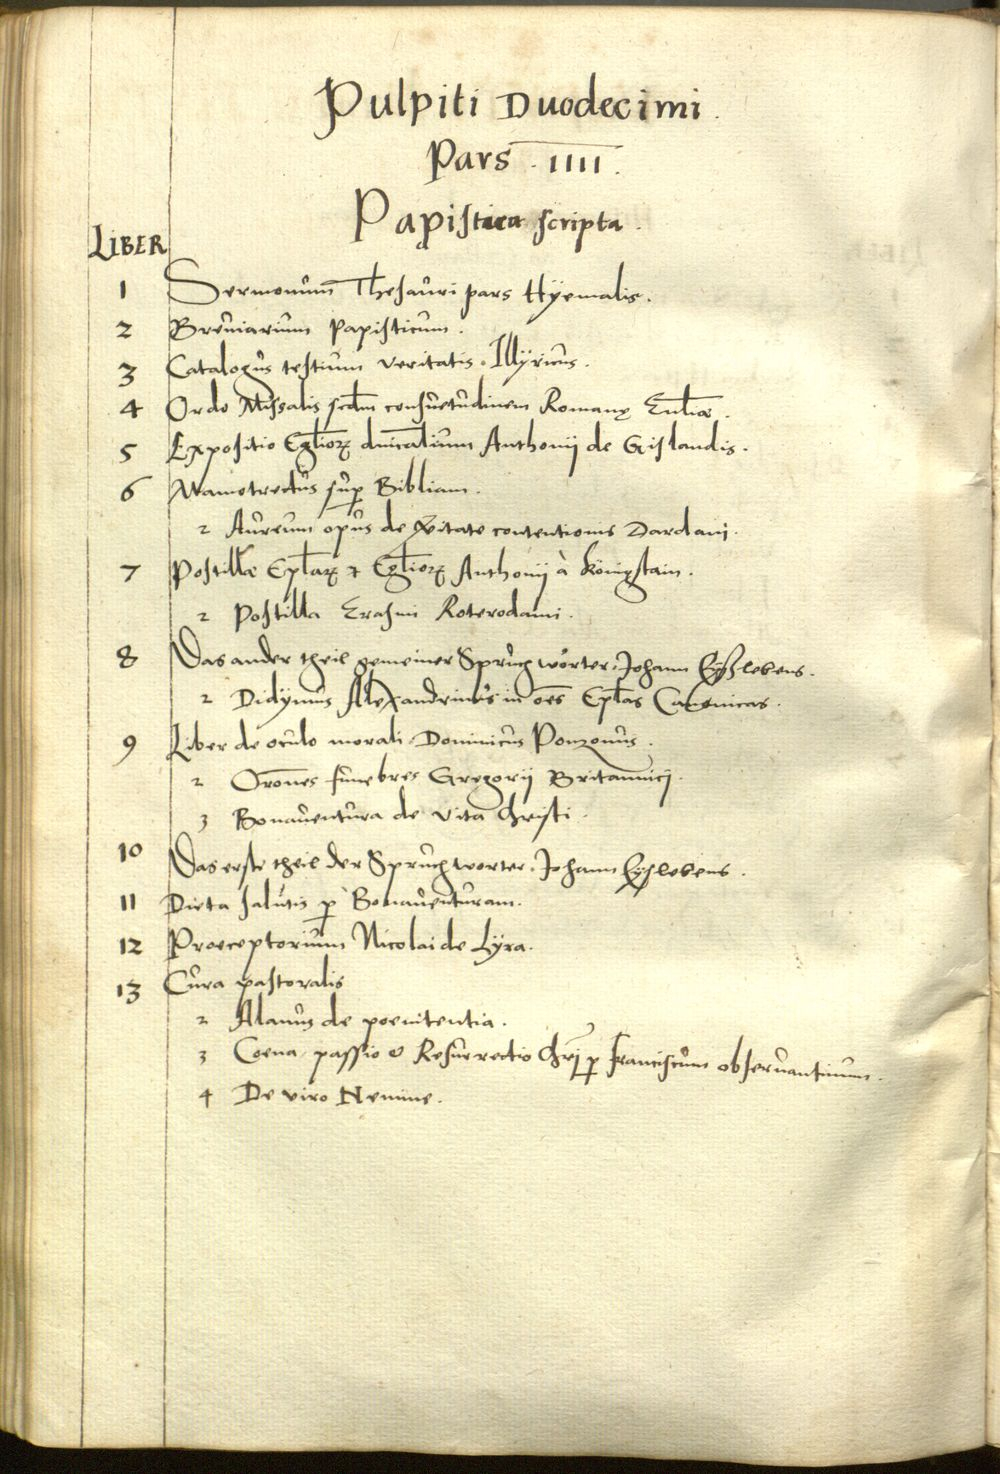 Pulpiti Duodecimi.
Pars. IIII.
Papistica scripta.
LIBER
1 Sermonum Thesauri pars Hyemalis.
2 Breviarium Papisticum.
3 Catalogus testium veritatis. Illyricus.
4 Ordo Missalis scdm consuetudinem Romanę
5 Expositio Dnicalium Anthonij de Gislandis.
6 Mamotrectus sup Bibliam.
2 Aureum opus de contentionis Dardani.
7 Postillæ Anthonij à Königstain.
2 Postilla Erasmi Roterodami.
8 Das ander theil gemeiner Sprüchwörter. Johann Eyszlebens.
2 Didymus Alexandrinus in oēs Eplas Canonicas.
9 Liber de oculo morali. Dominicus Ponzonus.
2 Orōnes funebres Gregorij Britannici.
3 Bonaventura de vita Christi.
10 Das erste theil der Spruchworter. Johann Eyslebens.
11 Dieta salutis p Bonaventuram.
12 Praeceptorium Nicolai de Lÿra.
13 Cura pastoralis
2 Alanus de poenitentia.
3 Coena, passio & Resurrectio Chrī p Franciscum observantinum.
4 De viro Nemine.